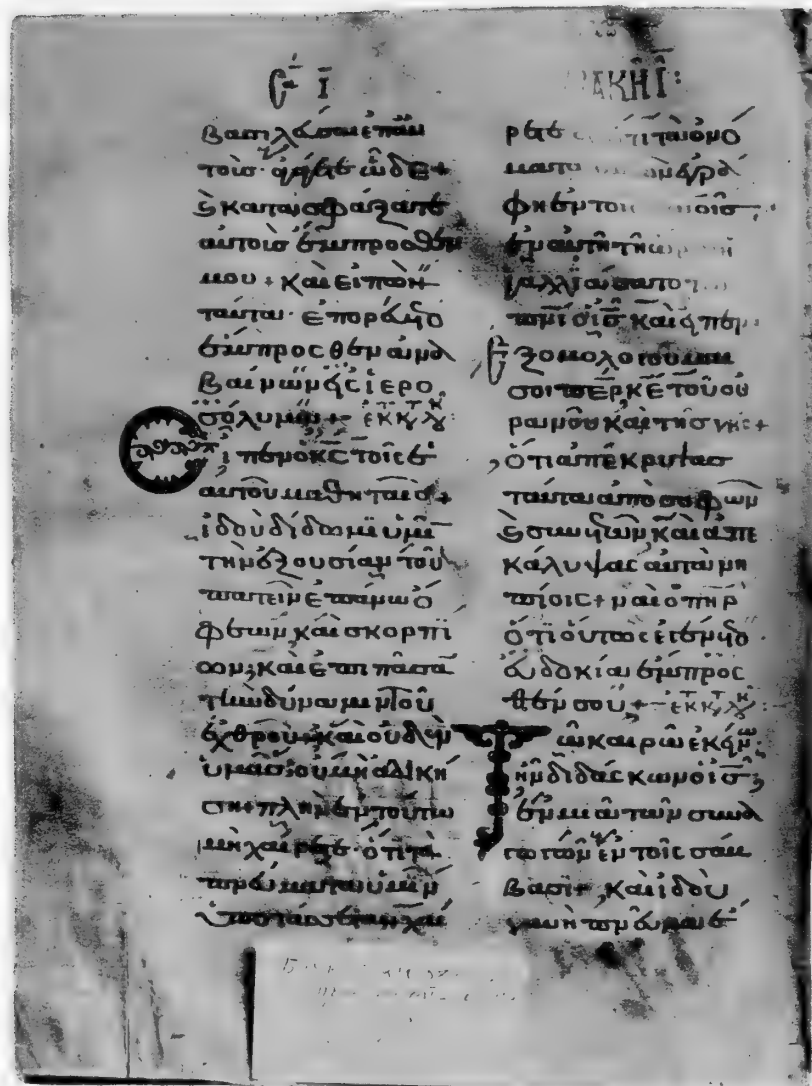 Βασιλεύσαι ἐπ' αὐ
τοῖσ· ἀγάγετε ὧδε +
ϗ κατασφάξατε
αὐτοὺσ ἔμπροσθέν
μου + καὶ εἰπὼν
ταῦτα· ἐπορεύετο
ἔμπροσθεν ἀνα
βαίνων εἰς ἱερο
σόλυμα +
Εἶπεν ὁ κς τοῖς ἑ
αυτοῦ μαθηταῖσ +
ἰδοὺ δίδωμι ὑμῖ
τὴν ἐξουσίαν τοῦ
πατεῖν ἐπάνω ὄ
φεων καὶ σκορπί
ων, καὶ ἐπὶ πᾶσα
τὴν δύναμιν τοῦ
ἐχθροῦ + καὶ οὐδὲν
ὑμᾶσ οὐ μὴ ἀδικὴ
ση + πλὴν ἐν τούτω
μὴ χαίρετε· ὅτι τὰ
πνεύματα ὑμῖν
ὑποτάσσεται χαί
ρετε ὅτι τὰ ὀνό
ματα
φη ἐν τοῖσ
ἐν αὐτῆ τῆ ὥρα
γαλλιάσατο
πνι ὁ ις καὶ εἶπεν
Ἐξομολογοῦμαι
σοι περ κε τοῦ οὐ
ρανοῦ καὶ τῆσ γῆς +
ὅτι ἀπέκρυψασ
ταῦτα ἀπὸ σοφῶν
ϗ συνετῶν, καὶ ἀπε
κάλυψας αὐτὰ νη
πίοις + ναὶ ὁ πηρ
ὅτι οὕτως ἐγένετο
εὐδοκία ἔμπροσ
θέν σου +
Τῶ καιρῶ ἐκείνω
ἦν διδάσκων ὁ ις
ἐν μιᾶ τῶν συνα
γωγῶν ἐν τοῖς σάβ
βασι + καὶ ἰδοὺ
γυνὴ πνεῦμα ἔ